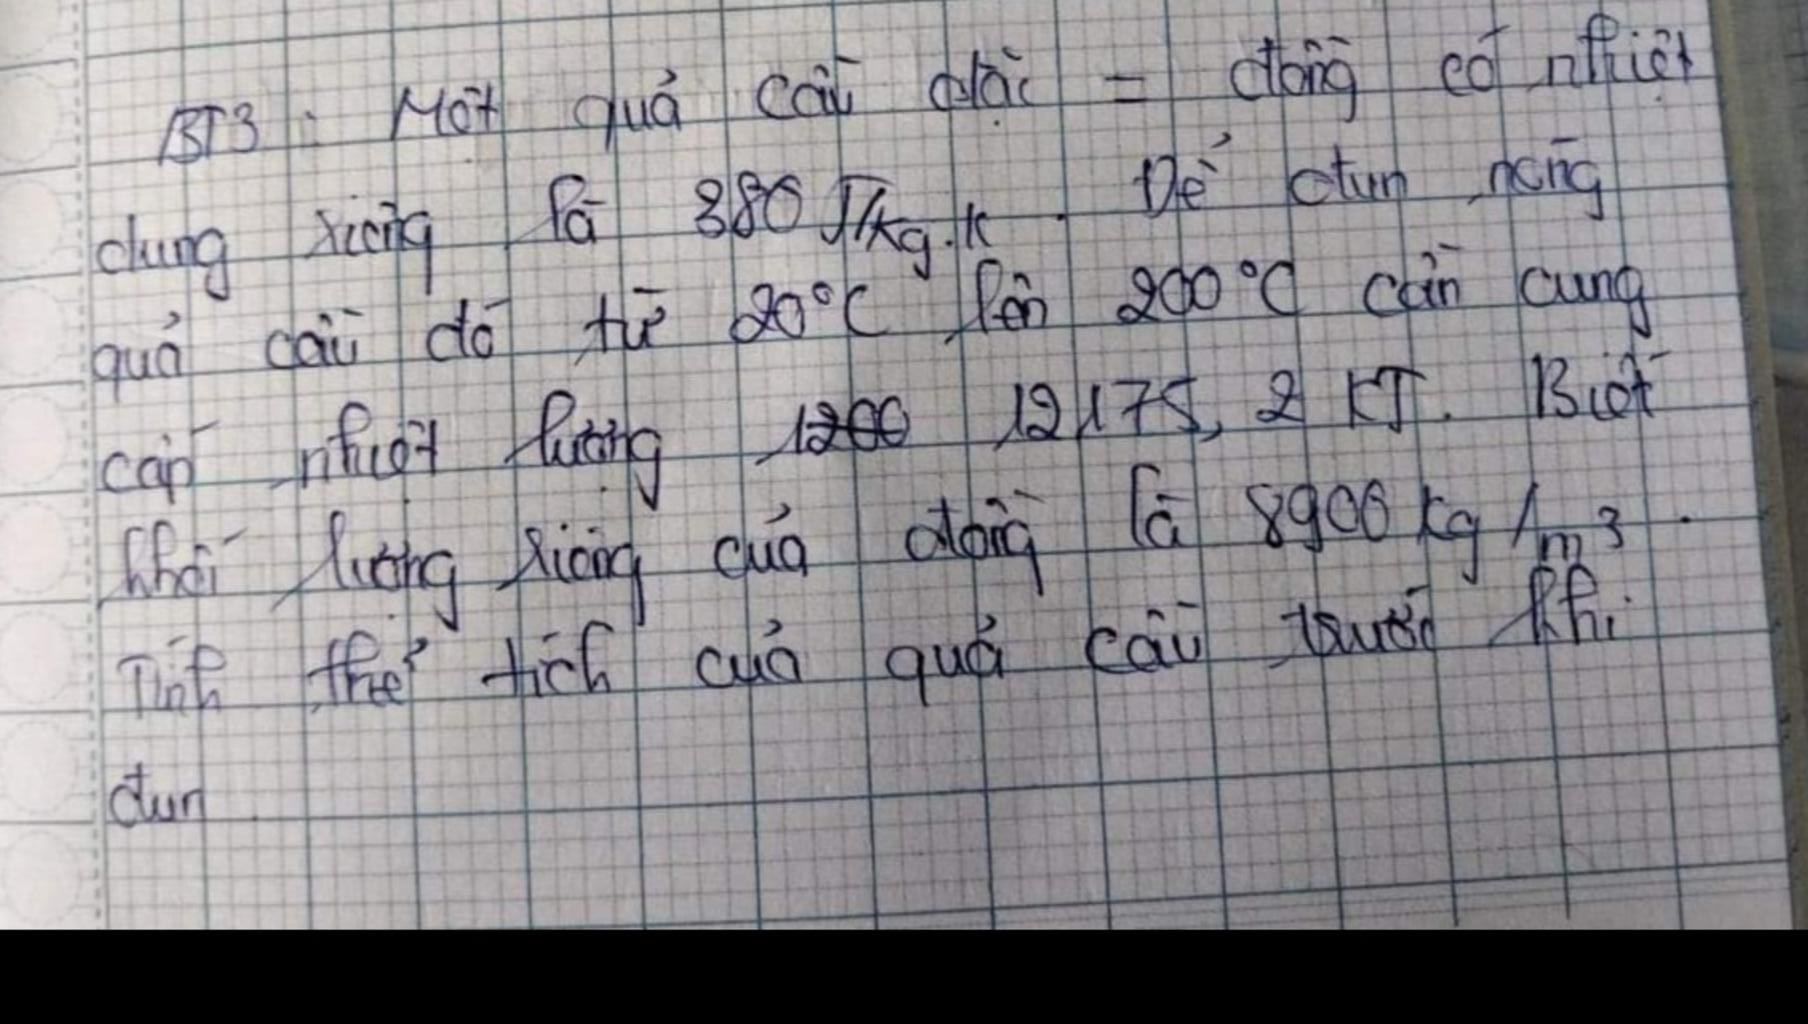 BT3 : Một quả cầu đặc = đồng có nhiệt
dung riêng là 380 J/kg.K . Để đun nóng
quả cầu đó từ 20°C lên 200°C cần cung
cấp nhiệt lượng 1200 12175,2 KJ. Biết
khối lượng riêng của đồng là 8900 kg/m³.
Tính thể tích của quả cầu trước khi
đun